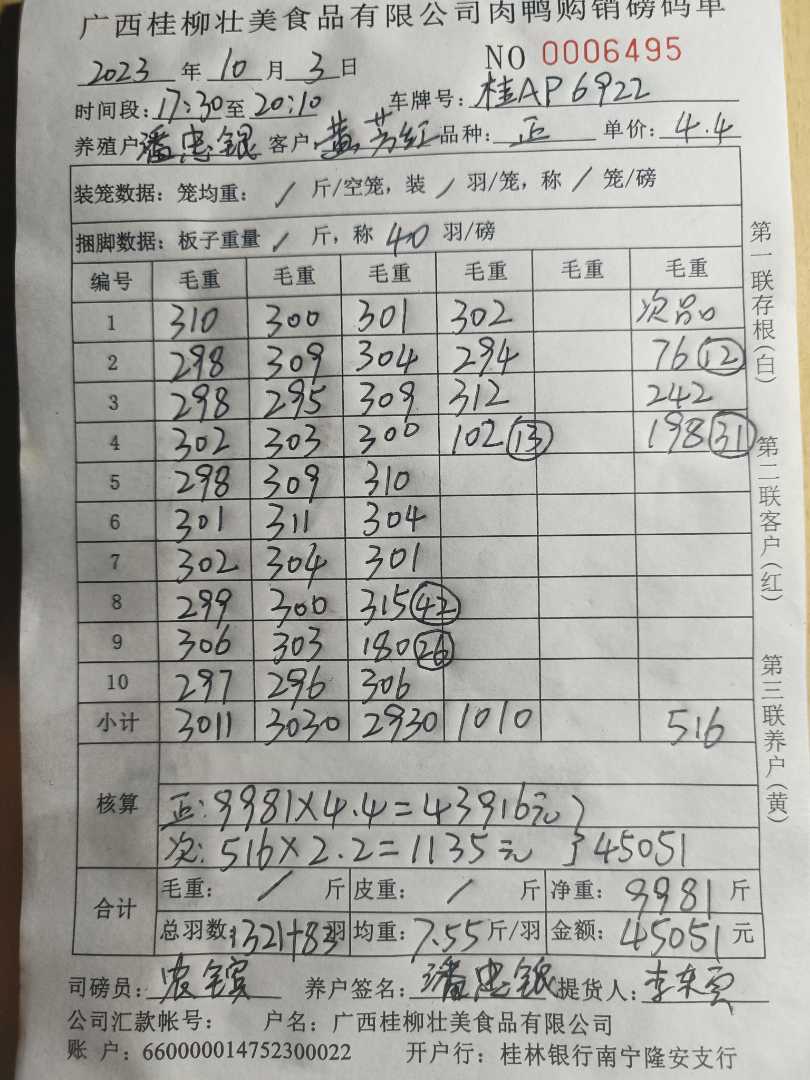 广西桂柳壮美食品有限公司肉鸭购销磅码单
2023 年 10 月 3 日 NO 0006495
时间段: 17:30 至 20:10 车牌号: 桂AP6922
养殖户 潘忠银 客户 黄芳红 品种: 正 单价: 4.4
装笼数据: 笼均重: / 斤/空笼, 装 / 羽/笼, 称 / 笼/磅
捆脚数据: 板子重量 / 斤, 称 40 羽/磅
编号 毛重 毛重 毛重 毛重 毛重 毛重
1 310 300 301 302 次品
2 298 309 304 294 76 (12)
3 298 295 309 312 242
4 302 303 300 102 (13) 198 (31)
5 298 309 310
6 301 311 304
7 302 304 301
8 299 300 315 (42)
9 306 303 180 (26)
10 297 296 306
小计 3011 3030 2930 1010 516
核算
正: 9981×4.4=43916元 }
次: 516×2.2=1135元 } 45051
合计 毛重: / 斤 皮重: / 斤 净重: 9981 斤
总羽数: 1321+83 羽 均重: 7.55 斤/羽 金额: 45051 元
司磅员: 养户签名: 潘忠银 提货人:
公司汇款帐号: 户名: 广西桂柳壮美食品有限公司
账 户: 660000014752300022 开户行: 桂林银行南宁隆安支行
第一联存根(白)
第二联客户(红)
第三联养户(黄)